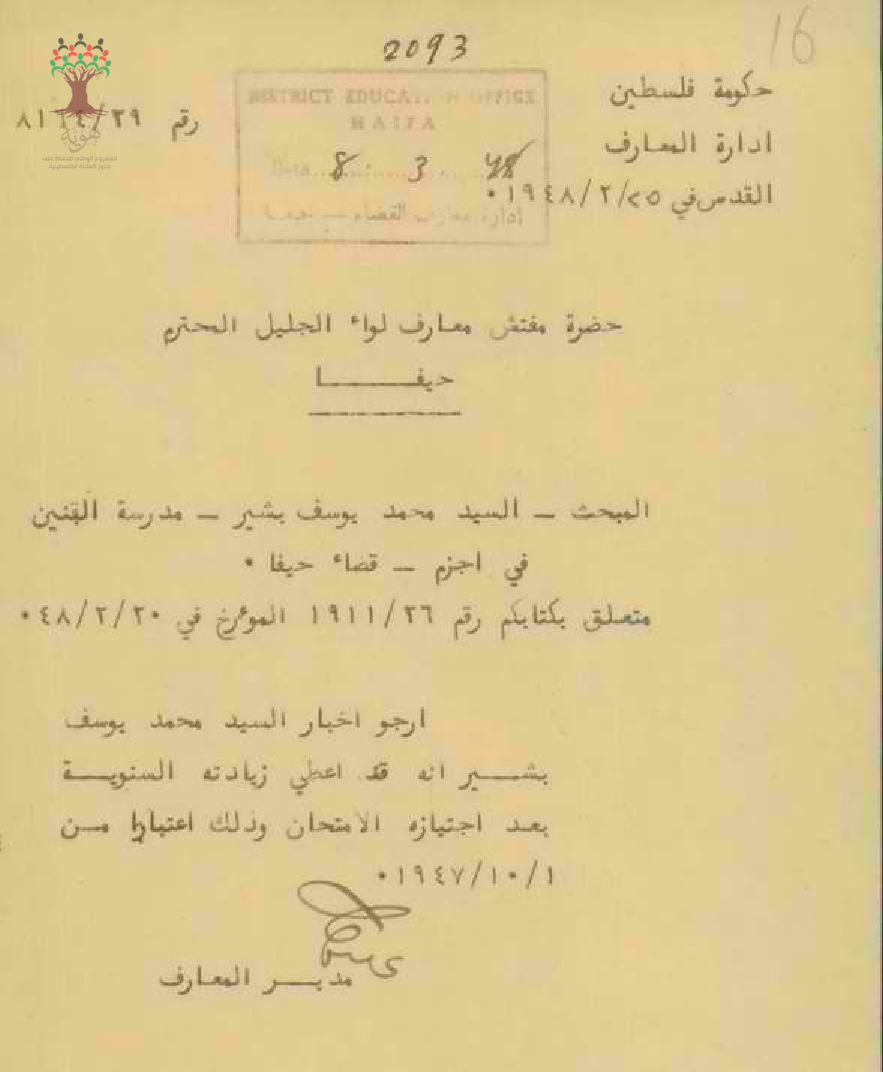 2093
16
حكومة فلسطين
ادارة المعارف
القدس في ٢٥/٢/١٩٤٨٠
رقم ٢٩/
DISTRICT EDUCATION OFFICE
HAIFA
Date 8 . 3 . 48
إدارة معارف القضاء — حيفا
هوية
حضرة مفتش معارف لواء الجليل المحترم
حيفــــــا
المبحث – السيد محمد يوسف بشير – مدرسة البنين
في اجزم – قضاء حيفا ٠
متعلق بكتابكم رقم ١٩١١/٢٦ الموءرخ في ٤٨/٢/٢٠٠
ارجو اخبار السيد محمد يوسف
بشـــير انه قد اعطي زيادته السنويــة
بعد اجتيازه الامتحان وذلك اعتبارا مــن
١٩٤٧/١٠/١٠
مديــر المعارف